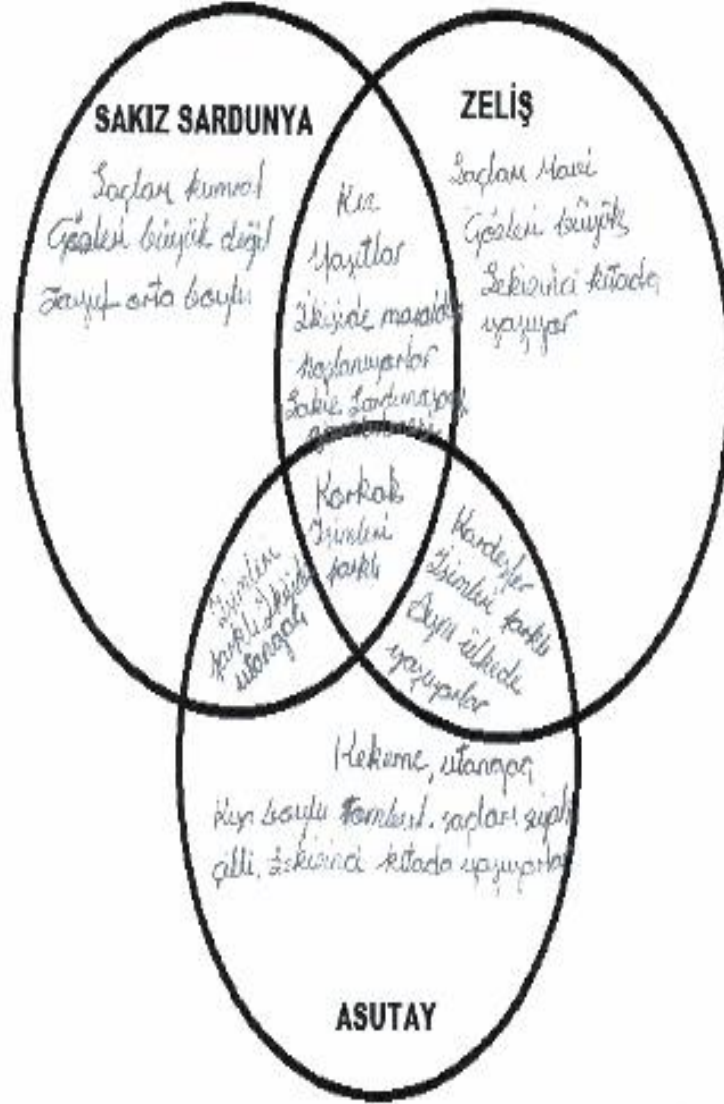 SAKIZ SARDUNYA
Saçları kumral
Gözleri büyük değil
zayıf orta boylu
ZELİŞ
Saçları Mavi
Gözleri büyük
Sekizinci kıtada
yaşıyor
Kız
Yaşıtlar
İkiside masaldan
hoşlanıyorlar
Sakız Sardunyayı
Korkak
İsimleri
farklı
İsimleri
farklı İkiside
utangaç
Kardeşler
İsimleri farklı
Aynı ülkede
yaşıyorlar
Kekeme, utangaç
Kısa boylu tombul, saçları siyah
çilli. Sekizinci kıtada yaşıyorlar
ASUTAY